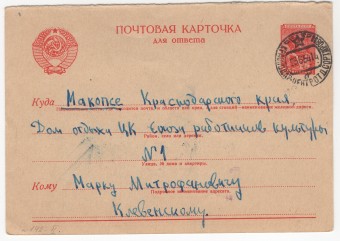 ПОЧТОВАЯ КАРТОЧКА
для ответа
Куда Макопсе Краснодарского края.
Дом отдыха ЦК Союза работников культуры
№1
Кому Марку Митрофановичу
Клевенскому.